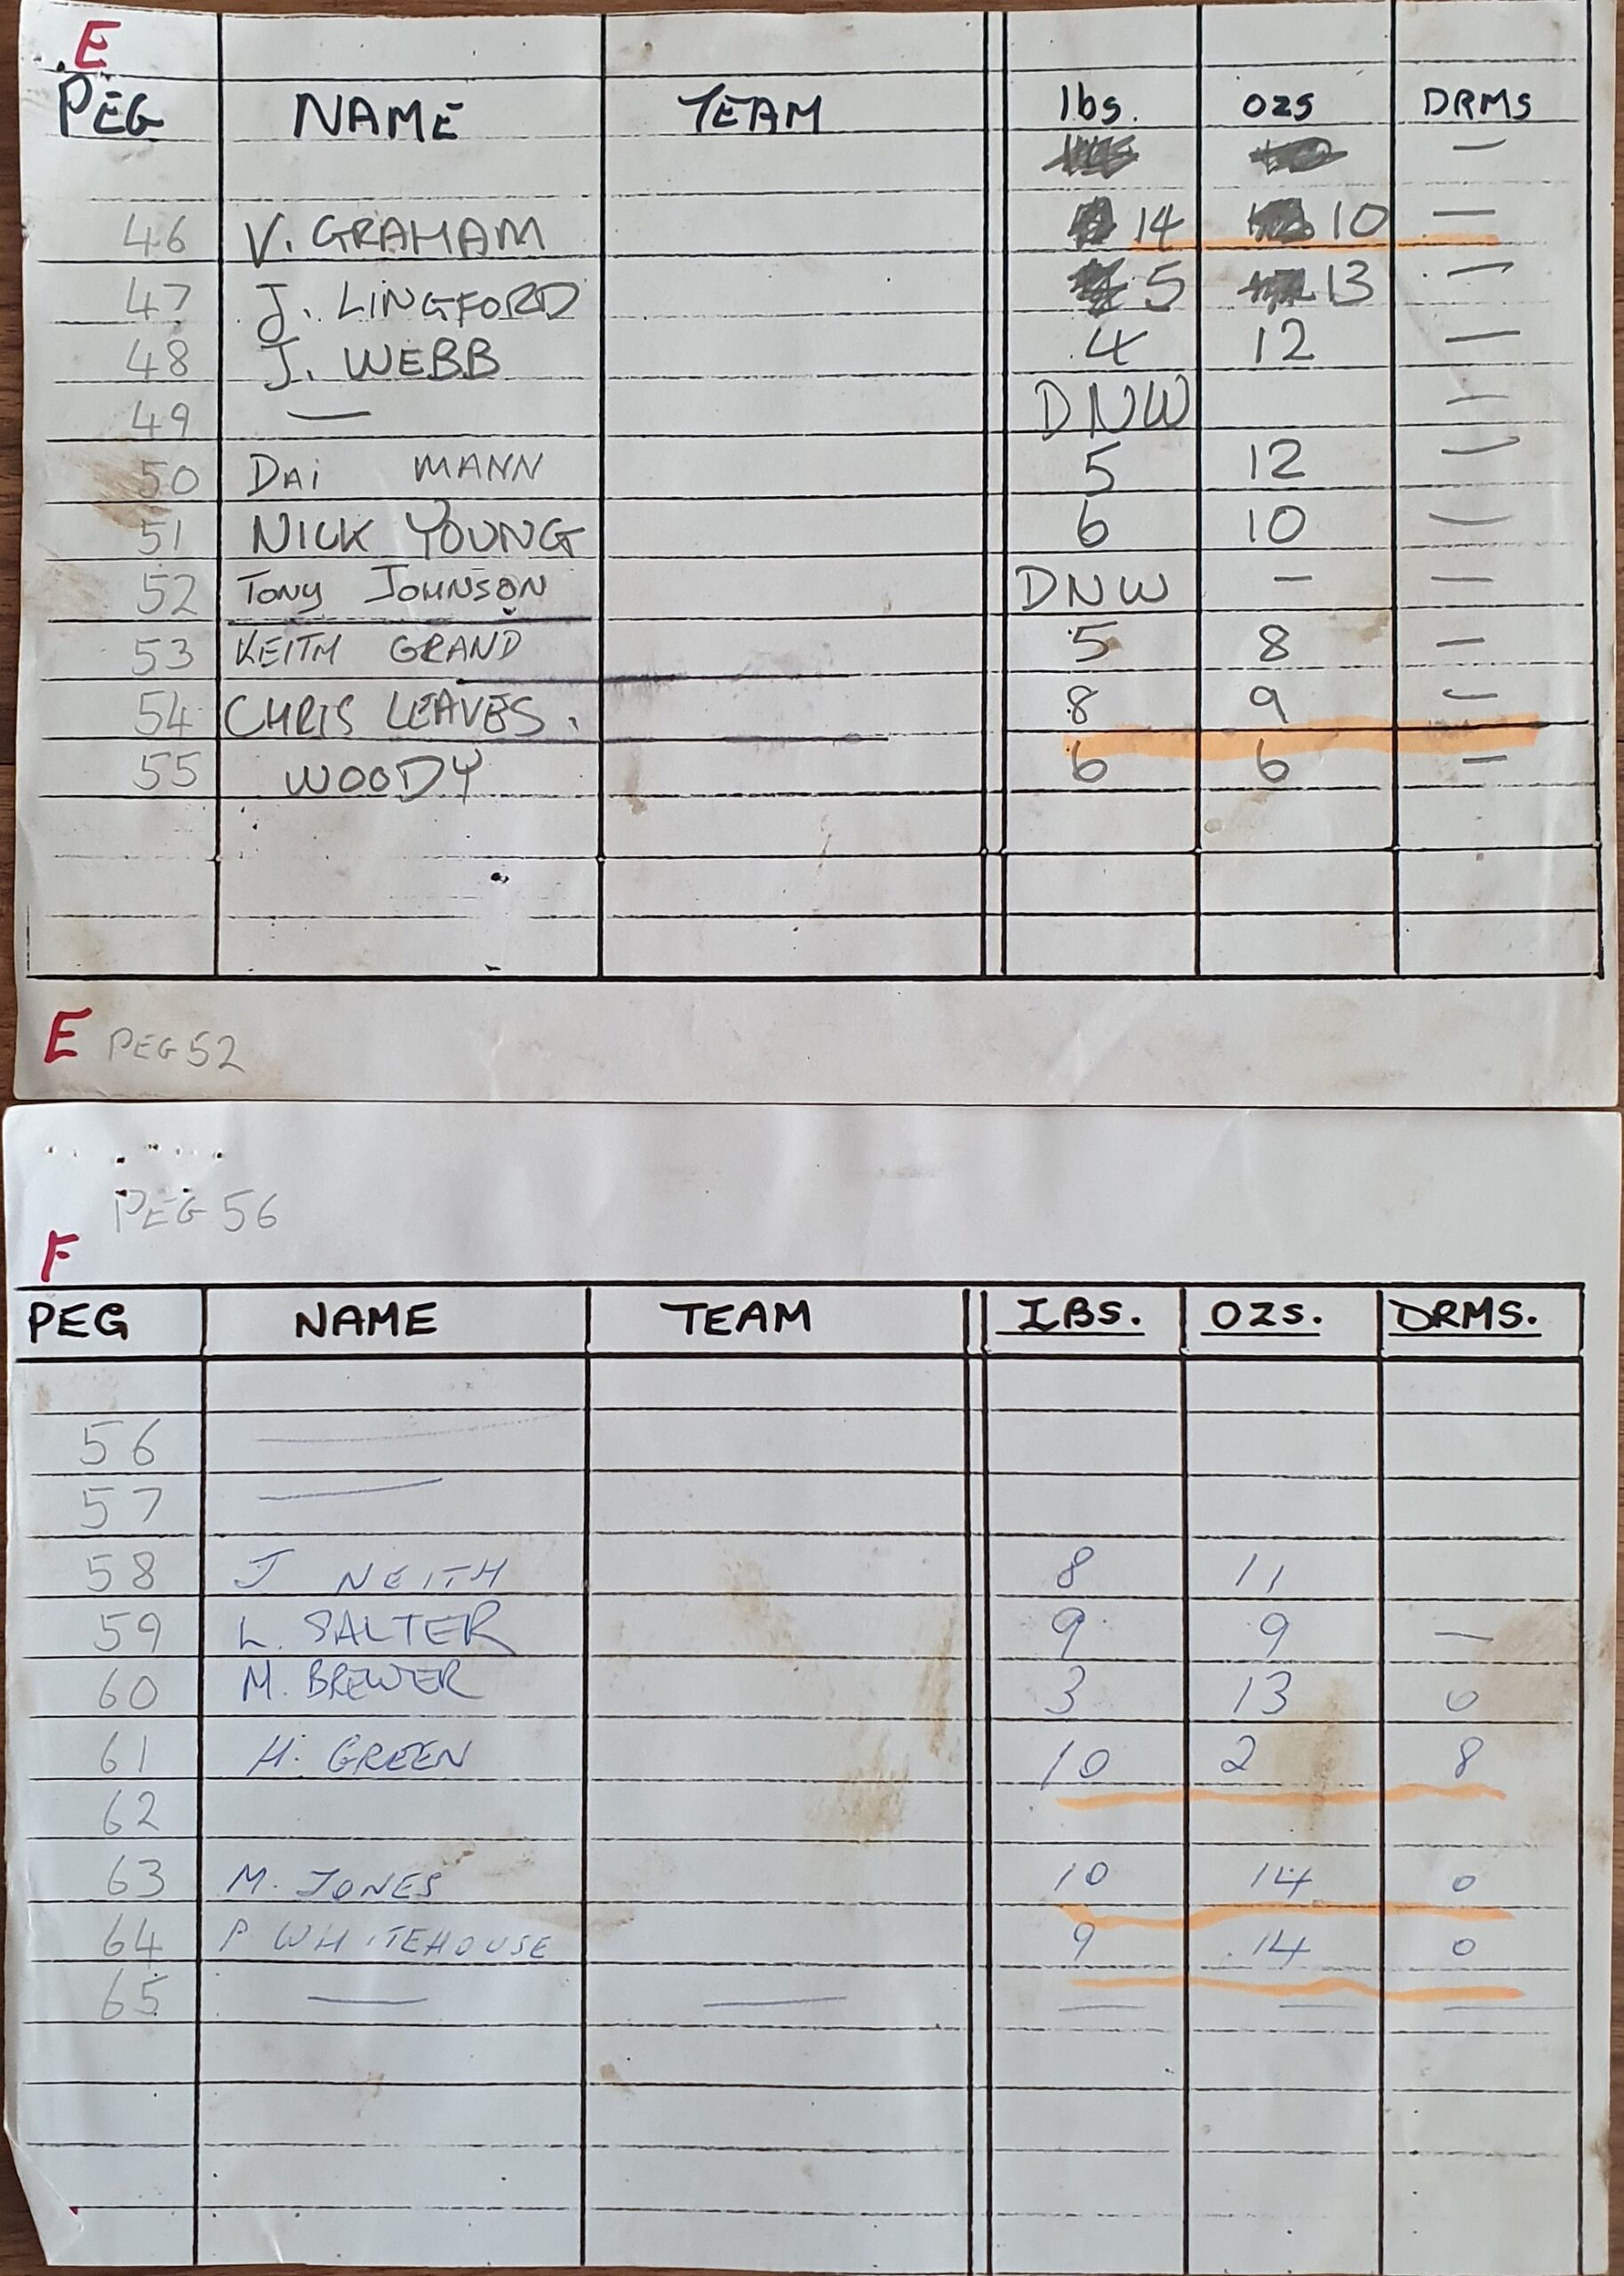 E
PEG NAME TEAM lbs. ozs DRMS
—
46 V. GRAHAM 14 10 —
47 J. LINGFORD 5 13 —
48 J. WEBB 4 12 —
49 — DNW —
50 DAi MANN 5 12 —
51 NICK YOUNG 6 10 —
52 TONY JOHNSON DNW — —
53 KEITH GRAND 5 8 —
54 CHRIS LEAVES. 8 9 —
55 WOODY 6 6 —
E PEG 52
PEG 56
F
PEG NAME TEAM IBS. OZS. DRMS.
56 —
57 —
58 J NEITH 8 11
59 L. SALTER 9 9 —
60 M. BREWER 3 13 0
61 H. GREEN 10 2 8
62
63 M. JONES 10 14 0
64 P WHITEHOUSE 9 14 0
65 — — — — —